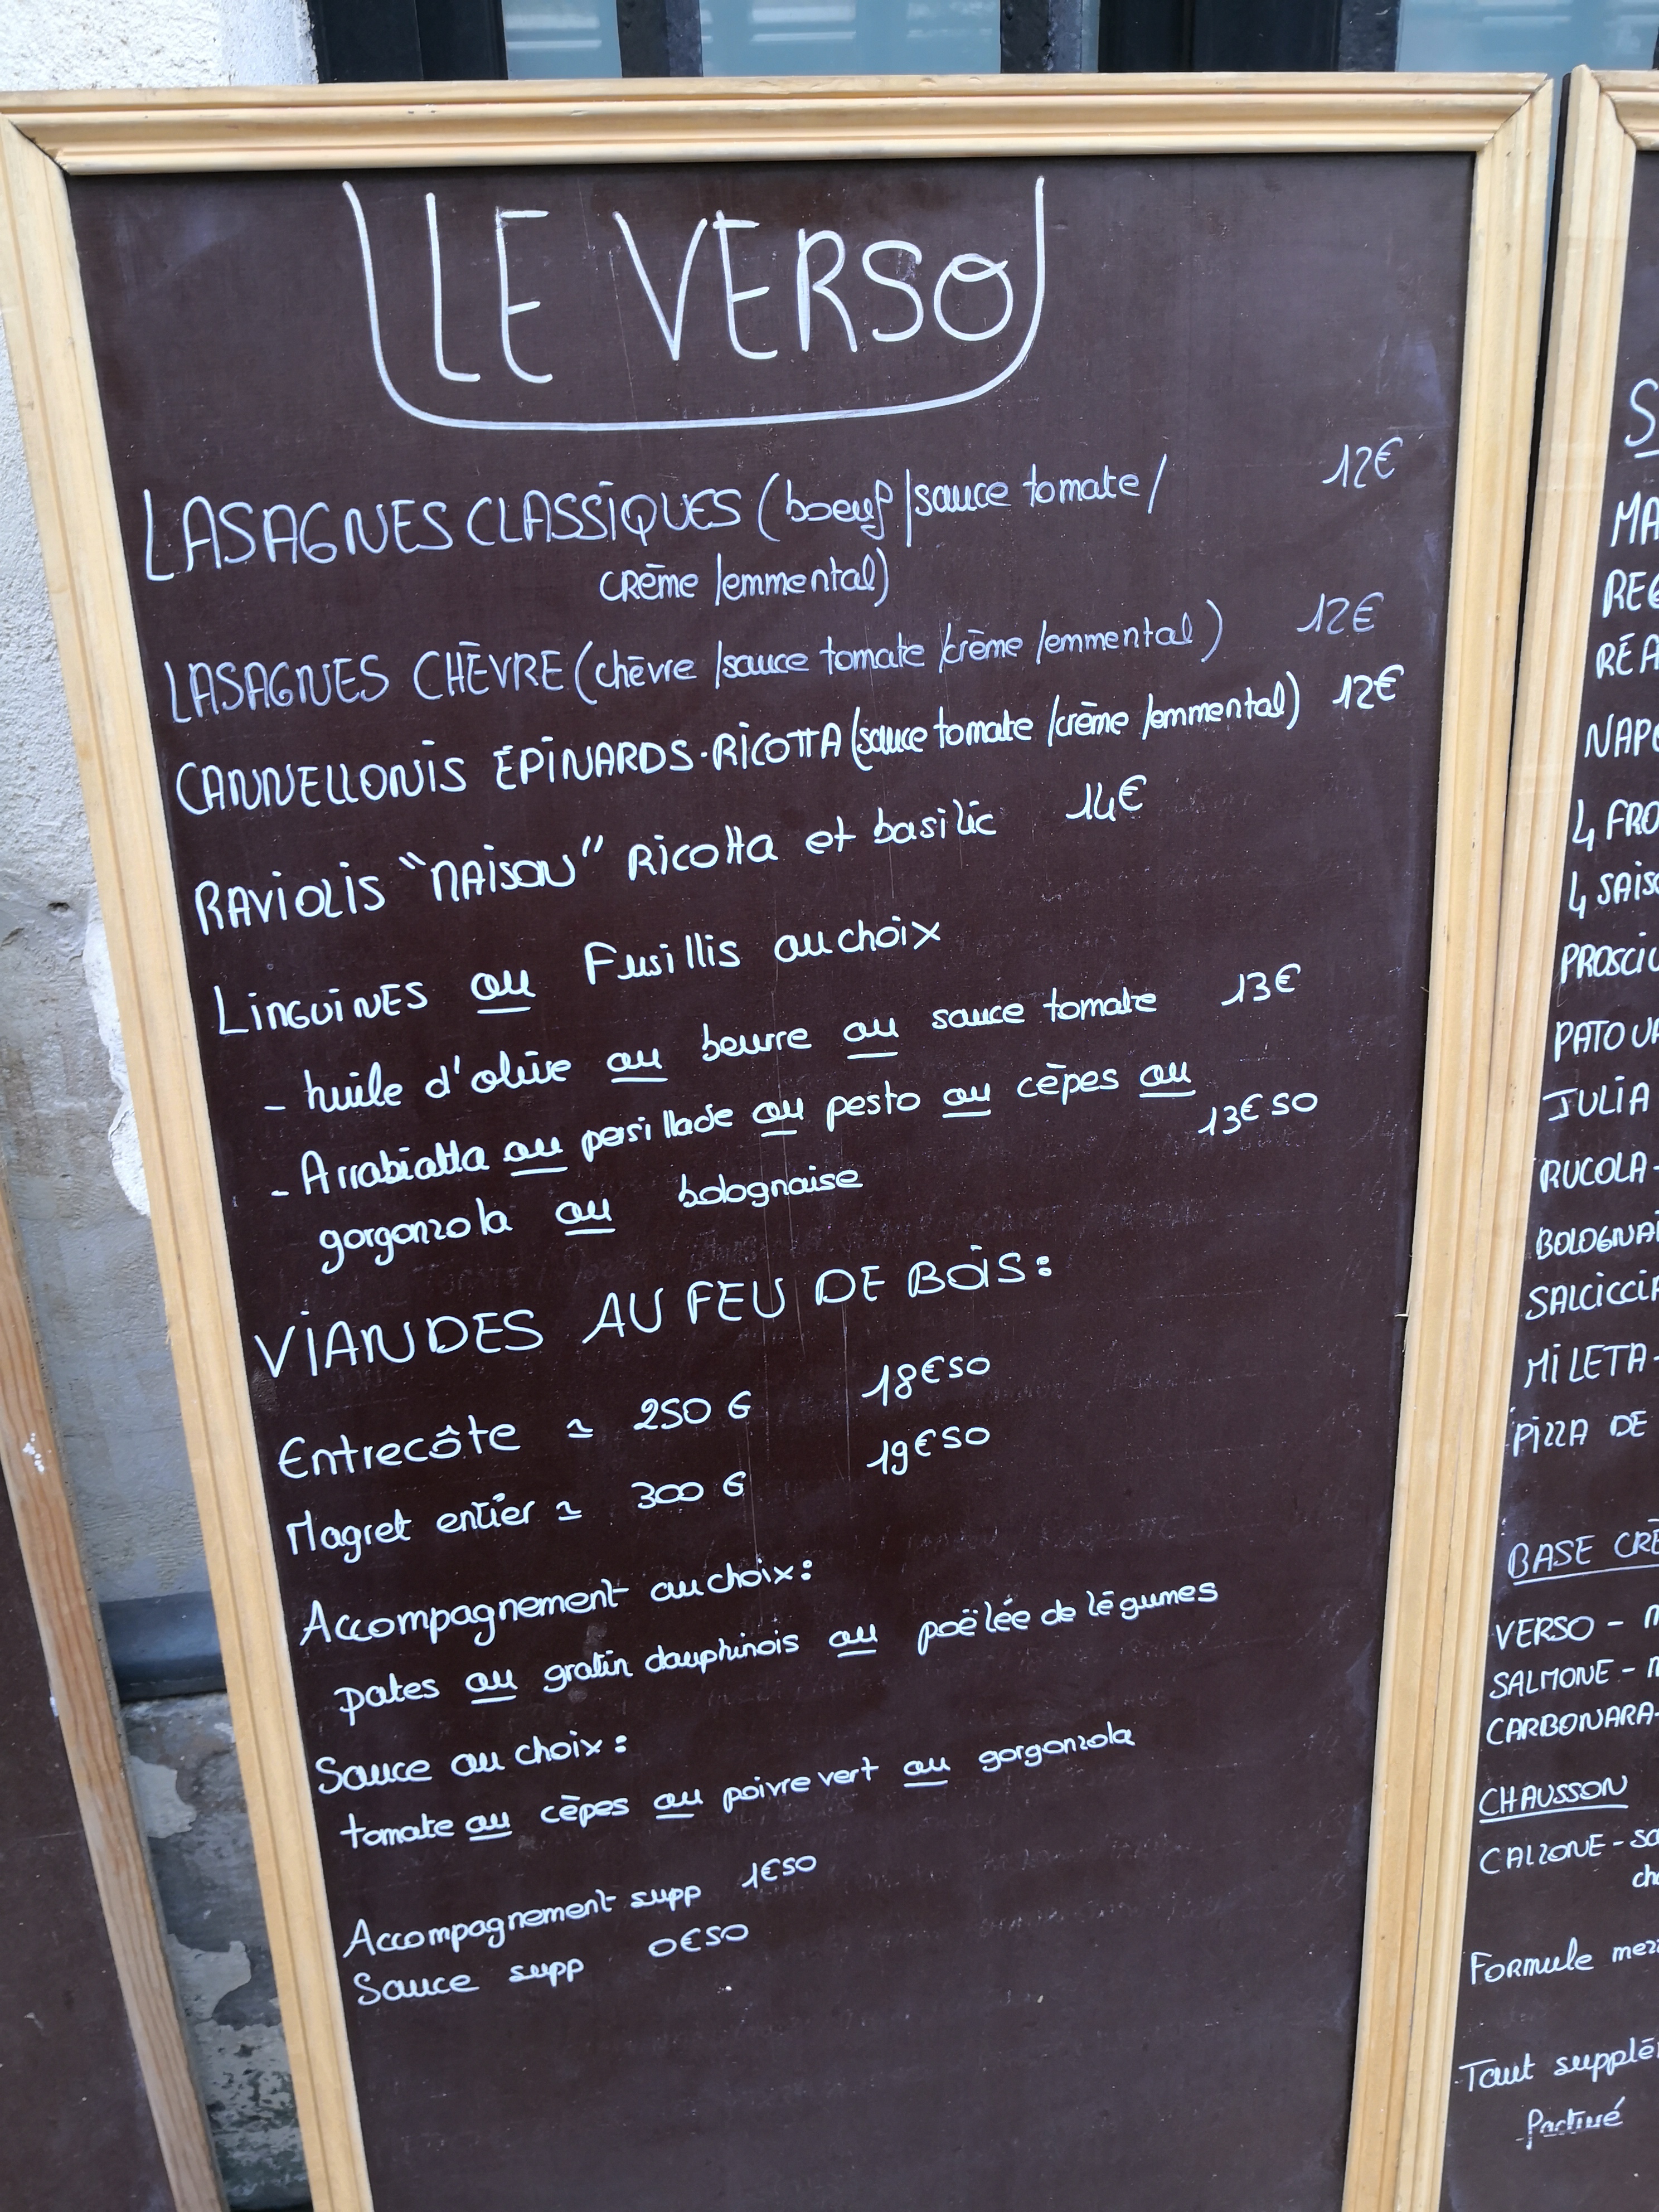 LE VERSO
LASAGNES CLASSIQUES (boeuf/sauce tomate/ 12€
crème/emmental)
LASAGNES CHÈVRE (chèvre/sauce tomate/crème/emmental) 12€
CANNELLONIS ÉPINARDS-RICOTTA (sauce tomate/crème/emmental) 12€
RAVIOLIS "MAISON" RICOTTA et basilic 14€
LINGUINES ou Fusillis au choix
- huile d'olive ou beurre ou sauce tomate 13€
- Arrabiatta ou persillade ou pesto ou cèpes ou
gorgonzola ou bolognaise 13€50
VIANDES AU FEU DE BOIS:
Entrecôte ≃ 250 G 18€50
Magret entier ≃ 300 G 19€50
Accompagnement au choix:
pates ou gratin dauphinois ou poëlée de légumes
Sauce au choix:
tomate ou cèpes ou poivre vert ou gorgonzola
Accompagnement supp 1€50
Sauce supp 0€50
S
MA
REG
REA
NAPO
4 FRO
4 SAISO
PROSCIU
PATOUA
JULIA
RUCOLA-
BOLOGNAI
SALCICCIA
MILETA-
PIZZA DE
BASE CRÈ
VERSO - M
SALMONE - M
CARBONARA-
CHAUSSON
CALZONE - sa
cha
Formule mezz
Tout supplém
facturé